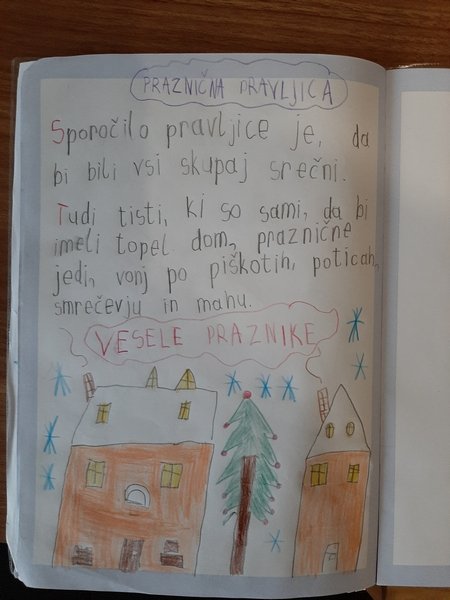 PRAZNIČNA PRAVLJICA
Sporočilo pravljice je, da
bi bili vsi skupaj srečni.
Tudi tisti, ki so sami, da bi
imeli topel dom, praznične
jedi, vonj po piškotih, poticah,
smrečevju in mahu.
VESELE PRAZNIKE